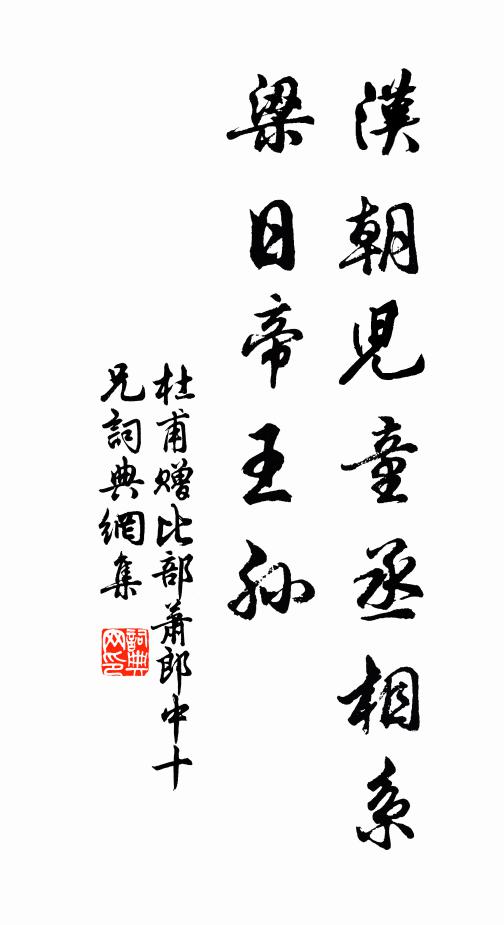 漢朝児童丞相系
梁日帝王孫
杜甫贈比部蕭郎中十
兄詞典網集
詞典
网印